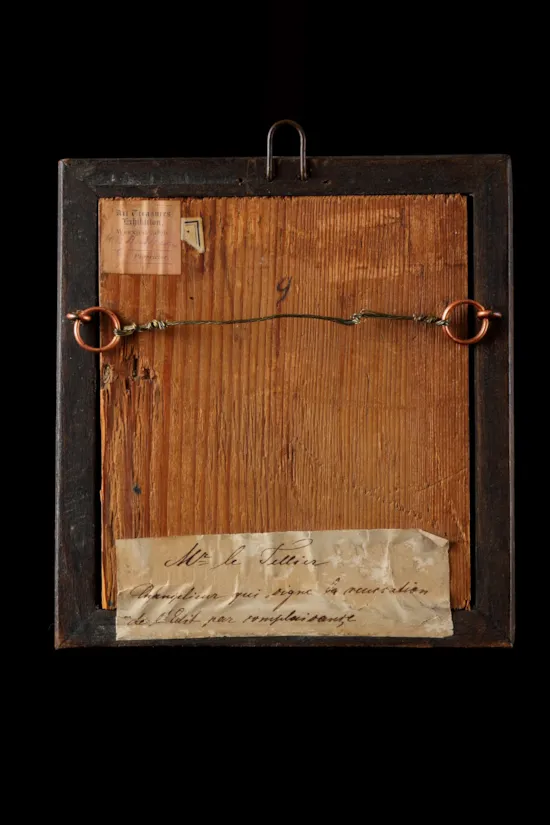 Art Treasures
Exhibition.
9
Mr. le Tellier
Chancelier qui signe la revocation
de l'Edit par complaisance